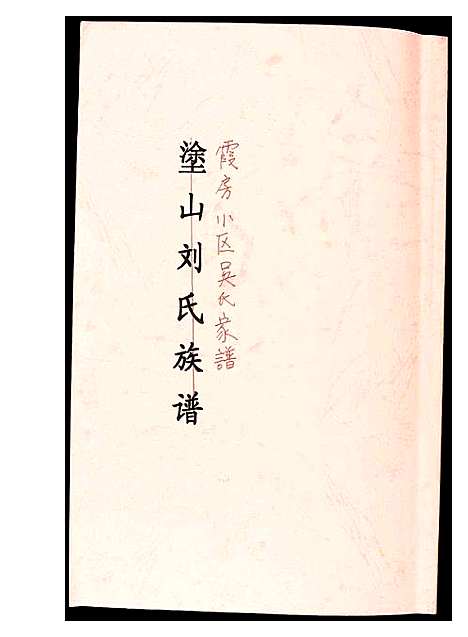 霞房小区吴氏家譜
塗山刘氏族谱